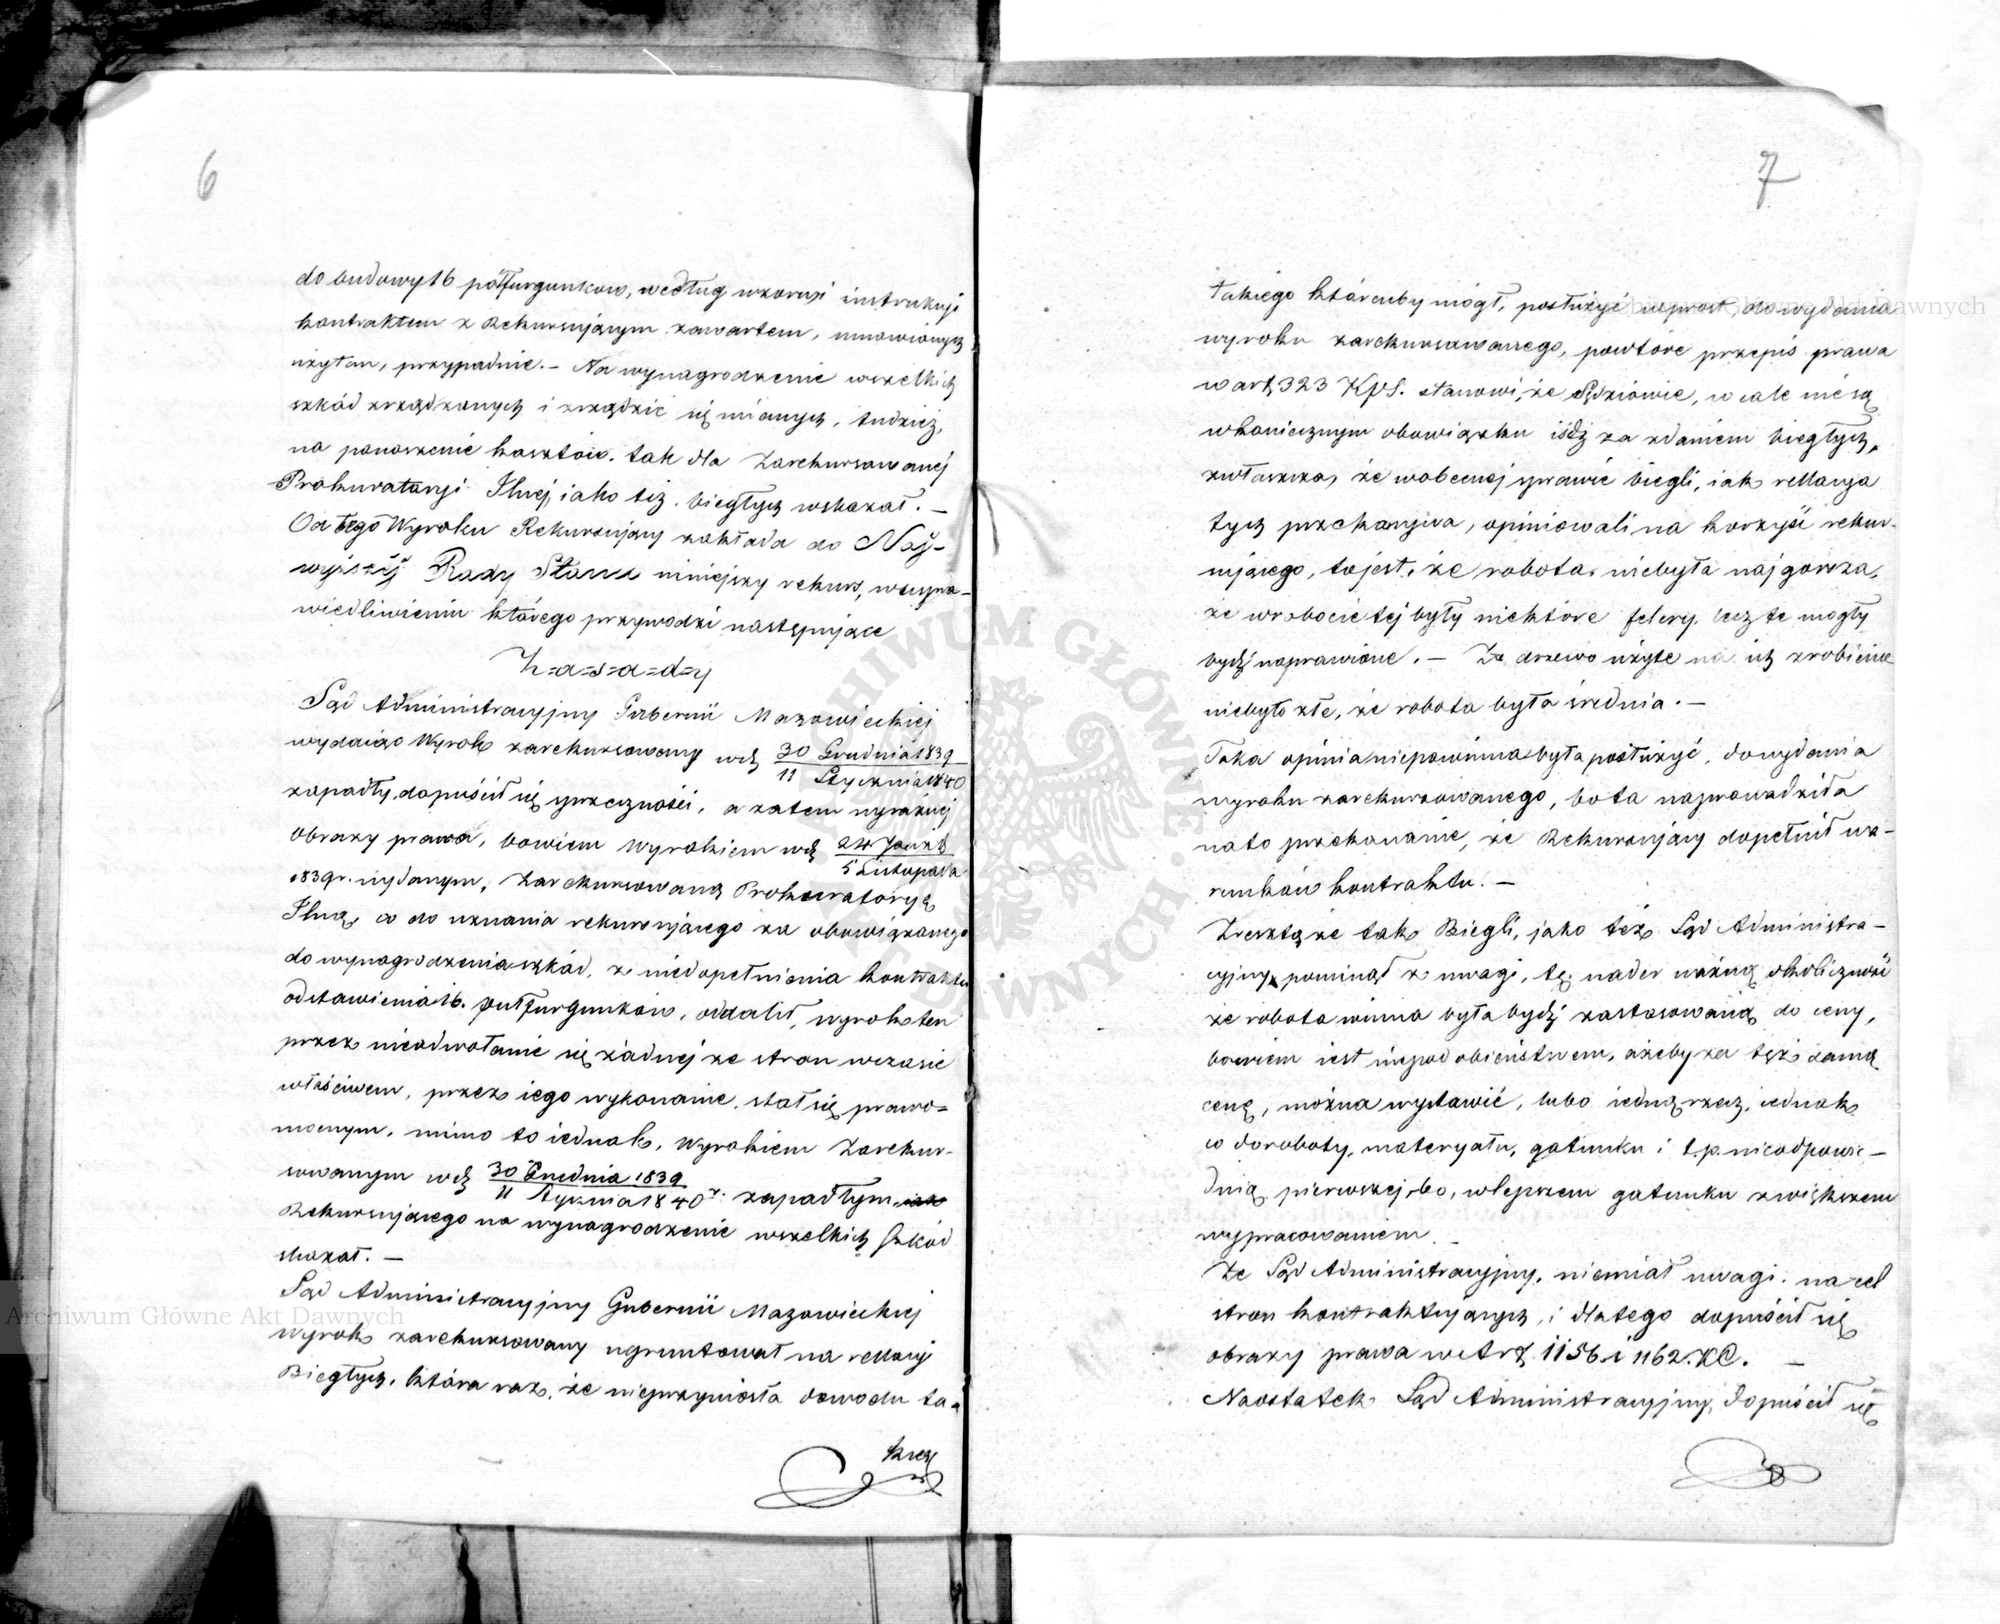 6
do budowy 16 półfurgunkow, według wzoru i instrukcji
kontraktem z Rekursującym zawartem, umowionych
użytan, przypadnie. – Na wynagrodzenie wszelkich
szkód zrządzonych i zrządzić się mianych, tudzież,
na ponoszenie kosztów, tak dla Zarekursowanej
Prokuratoryi Jlnej, iako też biegłych wskazał. –
Od tego Wyroku Rekursujący zakłada do Nay-
wyższéj Rady Stanu niniejszy rekurs, w uspra-
wiedliwieniu którego przywodzi następujące
Z=a=s=a=d=y
Sąd Administracyjny Gubernii Mazowieckiej
wydaiąc Wyrok zarekursowany w dź 30 Grudnia 1839
11 Stycznia 1840
zapadły, dopuścił się sprzeczności, a zatem wyraźnéj
Obrazy prawa, bowiem Wyrokiem w dź 24 Paźdź
5 Listopada
1839 r. wydanym, Zarekursowaną Prokuratoryą
Jlną, co do uznania rekursującego za obowiązanego
do wynagrodzenia szkód, z niedopełnienia kontraktu
odstawienia 16. pułfurgunków, oddalił, wyrok ten
przez nieodwołanie się żadnej ze stron w czasie
właściwem, przez iego wykonanie, stał się prawo=
mocnym, mimo to iednak, Wyrokiem Zarekur-
sowanym w dź 30 Grudnia 1839
11 Stycznia 1840 r. zapadłym
Rekursującego na wynagrodzenie wszelkich szkód
skazał. –
Sąd Administracyjny Gubernii Mazowieckiej
wyrok zarekursowany ugruntował na rellacyi
Biegłych, która raz, że nieprzyniosła dowodu ta-
7
takiego któreuby mógł, posłużyć wprost, do wydania
wyroku zarekursowanego, powtóre przepis prawa
w art 323 KPS. stanowi, że Sędziowie, wcale nie są
w koniecznym obowiązku iśdź za zdaniem biegłych,
zwłaszcza, że w obecnej sprawie biegli, iak rellacya
tych przekonywa, opiniowali na korzyść rekur-
sującego, to jest, że robota niebyła najgorsza,
że w robocie tej były niektóre felery, lecz te mogły
bydź naprawione. – Że drzewo użyte na ich zrobienie
niebyło złe, że robota była średnia. –
Taka opinia niepowinna była posłużyć, do wydania
wyroku zarekursowanego, bo ta naprowadziła
na to przekonanie, że Rekursujący dopełnił wa-
runków kontraktu. –
Zresztą że tak Biegli, jako też Sąd Administra-
cyjny pominął z uwagi, tę nader ważną okoliczność
że robota winna była bydź zastosowaną do ceny,
bowiem iest niepodobieństwem, ażeby za tęż samą
cenę, można wystawić, lubo iedną rzecz, iednak
co do roboty, materyału, gatunku i t.p. nieodpowie-
dnią pierwszej, bo, w lepszem gatunku z większem
wypracowaniem. –
Że Sąd Administracyjny, niemiał uwagi na cel
stron kontraktujących, i dlatego dopuścił się
obrazy prawa w Art. 1156 i 1162. KC. –
Naostatek Sąd Administracyjny, dopuścił się
Archiwum Główne Akt Dawnych
Archiwum Główne Akt Dawnych
ARCHIWUM GŁÓWNE AKT DAWNYCH